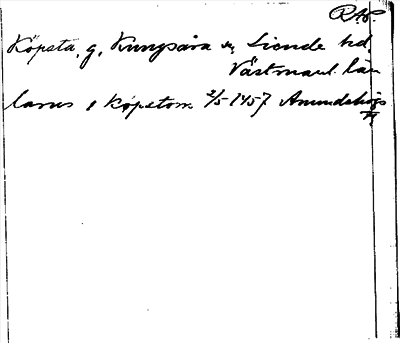 RAP.
Köpsta, g, Kungsåra sn, Siende hd,
Västmanl. län
larus i Køpstom 2/5 1457 Anundshögs